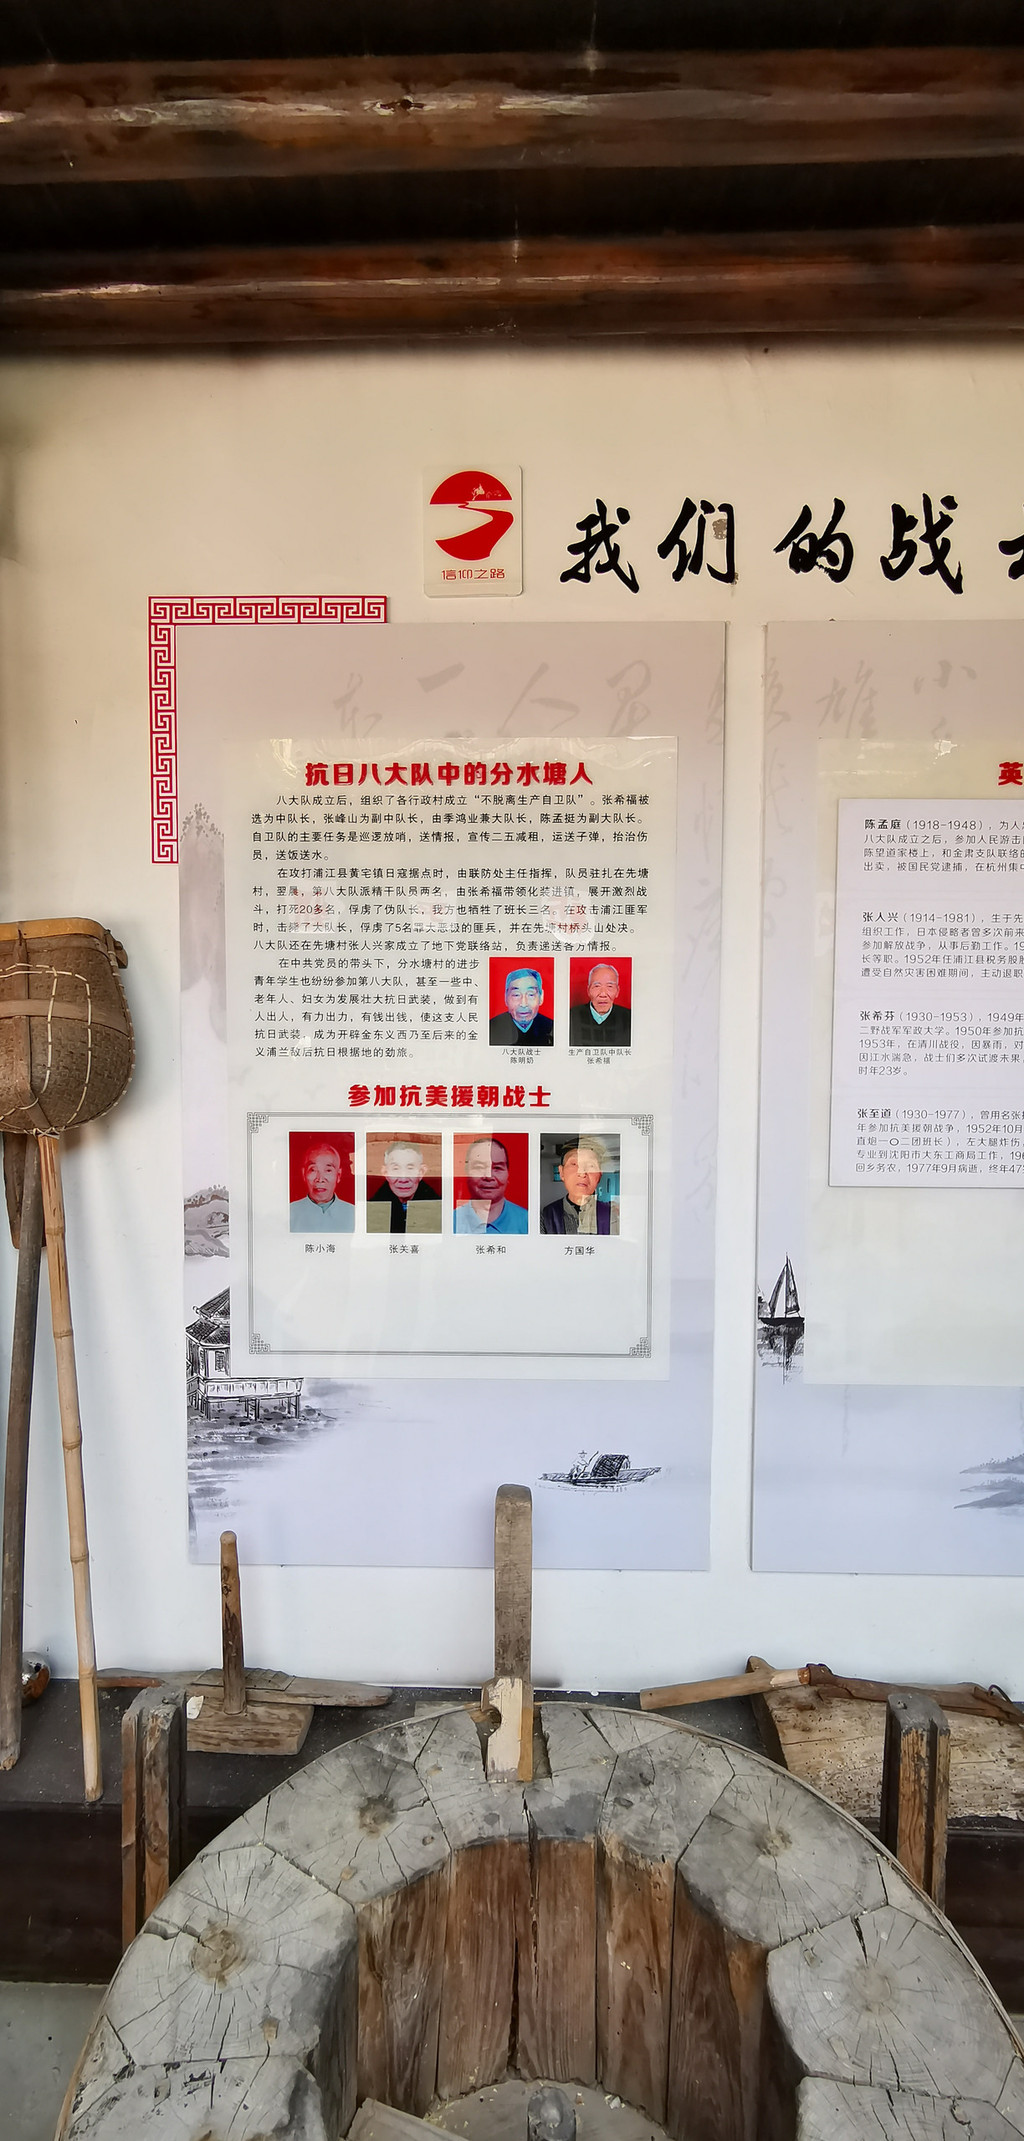 信仰之路
我们的战
抗日八大队中的分水塘人
八大队成立后，组织了各行政村成立“不脱离生产自卫队”。张希福被
选为中队长，张峰山为副中队长，由季鸿业兼大队长，陈孟挺为副大队长。
自卫队的主要任务是巡逻放哨，送情报，宣传二五减租，运送子弹，抬治伤
员，送饭送水。
在攻打浦江县黄宅镇日寇据点时，由联防处主任指挥，队员驻扎在先塘
村，翌晨，第八大队派精干队员两名，由张希福带领化装进镇，展开激烈战
斗，打死20多名，俘虏了伪队长，我方也牺牲了班长三名。在攻击浦江匪军
时，击毙了大队长，俘虏了5名罪大恶极的匪兵，并在先塘村桥头山处决。
八大队还在先塘村张人兴家成立了地下党联络站，负责递送各方情报。
在中共党员的带头下，分水塘村的进步
青年学生也纷纷参加第八大队，甚至一些中、
老年人、妇女为发展壮大抗日武装，做到有
人出人，有力出力，有钱出钱，使这支人民
抗日武装，成为开辟金东义西乃至后来的金
义浦兰敌后抗日根据地的劲旅。
八大队战士
陈明奶
生产自卫队中队长
张希福
参加抗美援朝战士
陈小海
张关喜
张希和
方国华
英
陈孟庭（1918-1948），为人
八大队成立之后，参加人民游击
陈望道家楼上，和金肃支队联络
出卖，被国民党逮捕，在杭州集中
张人兴（1914-1981），生于先
组织工作，日本侵略者曾多次前来
参加解放战争，从事后勤工作。19
长等职。1952年任浦江县税务股
遭受自然灾害困难期间，主动退职
张希芬（1930-1953），1949年
二野战军军政大学。1950年参加抗
1953年，在清川战役，因暴雨，对
因江水湍急，战士们多次试渡未果，
时年23岁。
张至道（1930-1977），曾用名张
年参加抗美援朝战争，1952年10月
直炮一〇二团班长），左大腿炸伤，
专业到沈阳市大东工商局工作，196
回乡务农，1977年9月病逝，终年47